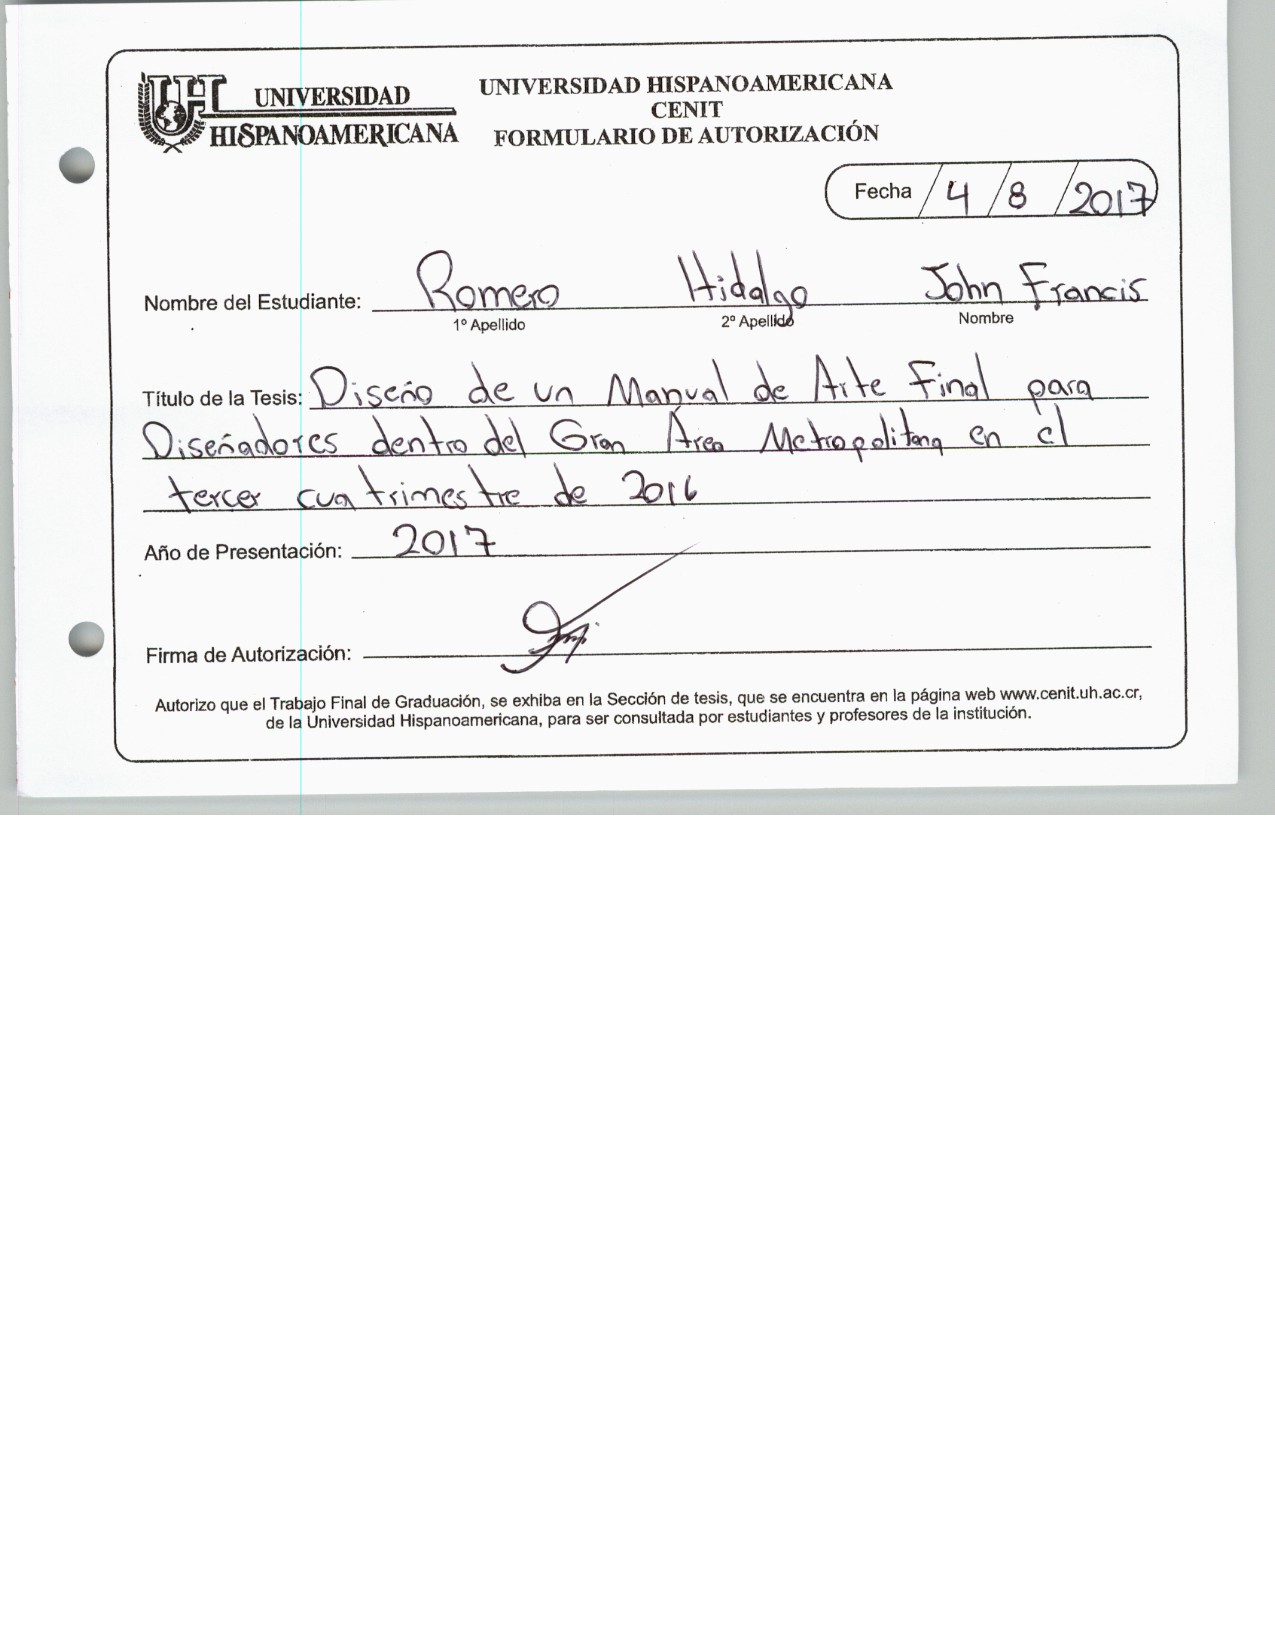 UNIVERSIDAD
HISPANOAMERICANA
UNIVERSIDAD HISPANOAMERICANA
CENIT
FORMULARIO DE AUTORIZACIÓN
Fecha 4/8/2017
Nombre del Estudiante: Romero Hidalgo John Francis
1º Apellido 2º Apellido Nombre
Título de la Tesis: Diseño de un Manual de Arte Final para
Diseñadores dentro del Gran Área Metropolitana en el
tercer cuatrimestre de 2016
Año de Presentación: 2017
Firma de Autorización:
Autorizo que el Trabajo Final de Graduación, se exhiba en la Sección de tesis, que se encuentra en la página web www.cenit.uh.ac.cr,
de la Universidad Hispanoamericana, para ser consultada por estudiantes y profesores de la institución.